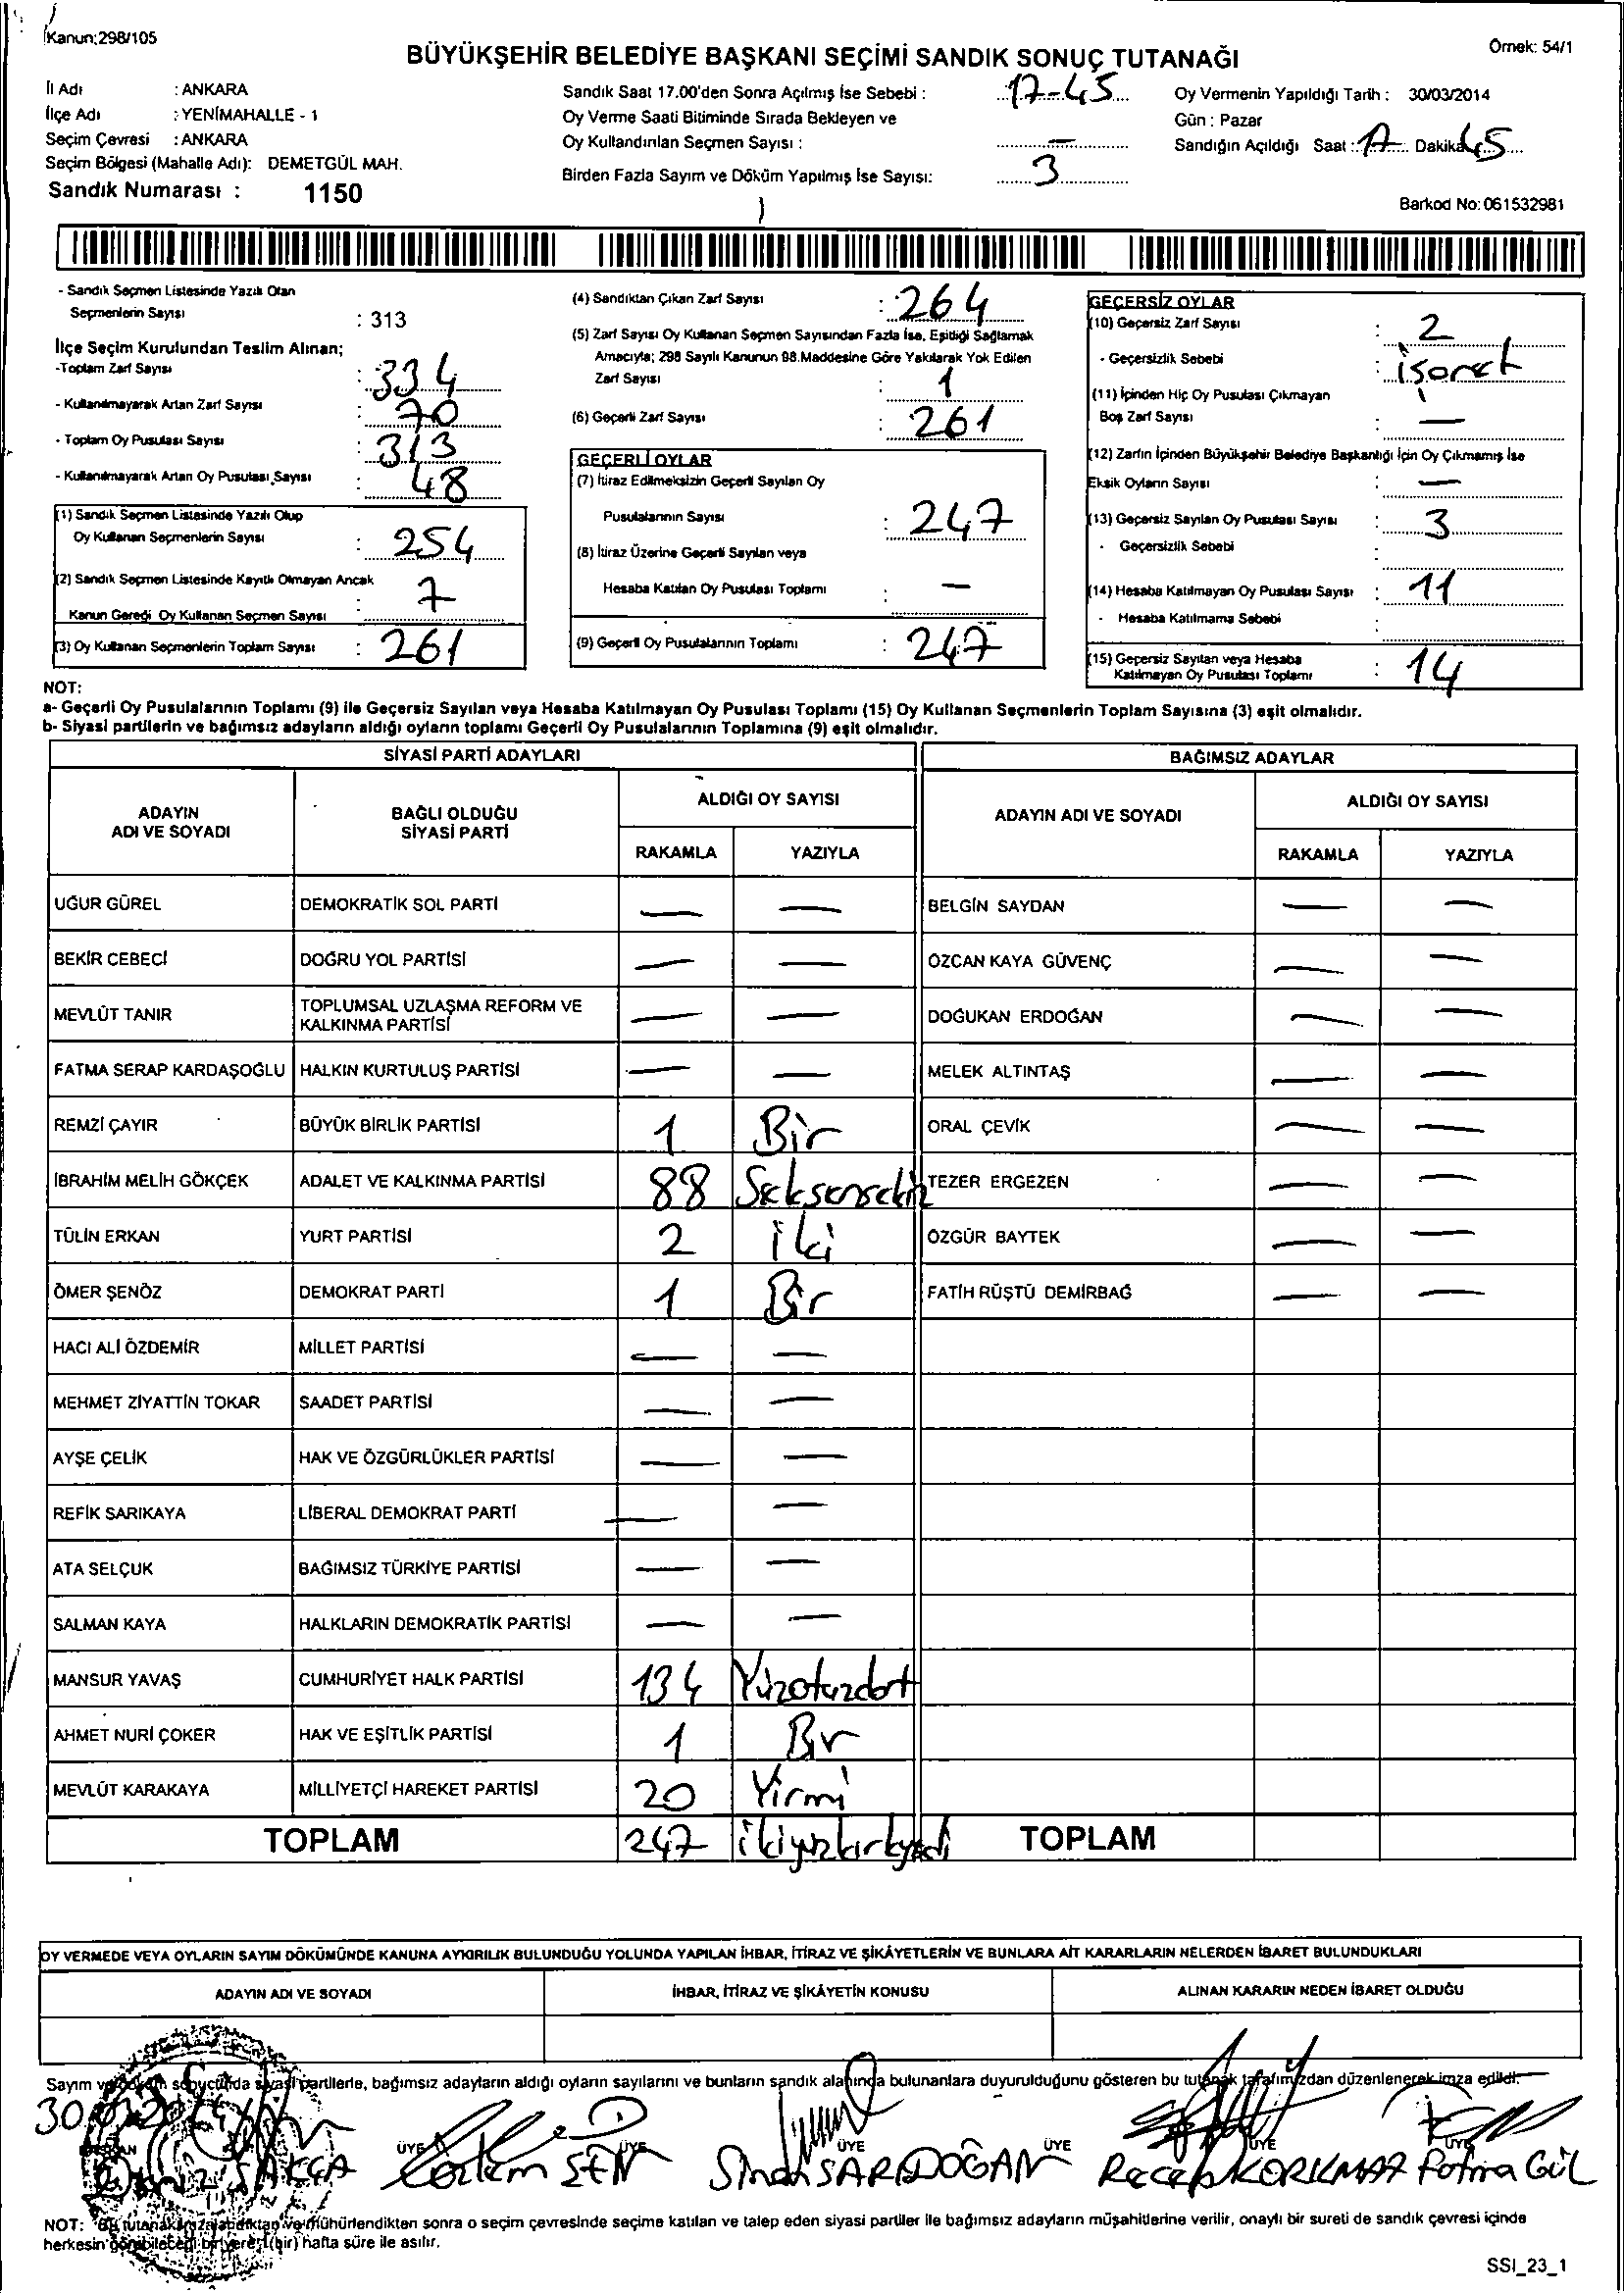 Kanun;298/105
Örnek: 54/1
BÜYÜKŞEHİR BELEDİYE BAŞKANI SEÇİMİ SANDIK SONUÇ TUTANAĞI
İl Adı : ANKARA
İlçe Adı : YENİMAHALLE - 1
Seçim Çevresi : ANKARA
Seçim Bölgesi (Mahalle Adı): DEMETGÜL MAH.
Sandık Numarası : 1150
Sandık Saat 17.00'den Sonra Açılmış İse Sebebi : 17-45
Oy Verme Saati Bitiminde Sırada Bekleyen ve
Oy Kullandırılan Seçmen Sayısı : —
Birden Fazla Sayım ve Döküm Yapılmış İse Sayısı: 3
Oy Vermenin Yapıldığı Tarih : 30/03/2014
Gün : Pazar
Sandığın Açıldığı Saat : 17 Dakika 45
Barkod No: 061532981
- Sandık Seçmen Listesinde Yazılı Olan
Seçmenlerin Sayısı : 313
İlçe Seçim Kurulundan Teslim Alınan;
-Toplam Zarf Sayısı : 334
- Kullanılmayarak Artan Zarf Sayısı : 70
- Toplam Oy Pusulası Sayısı : 313
- Kullanılmayarak Artan Oy Pusulası Sayısı : 48
(1) Sandık Seçmen Listesinde Yazılı Olup
Oy Kullanan Seçmenlerin Sayısı : 254
(2) Sandık Seçmen Listesinde Kayıtlı Olmayan Ancak
Kanun Gereği Oy Kullanan Seçmen Sayısı : 7
(3) Oy Kullanan Seçmenlerin Toplam Sayısı : 261
(4) Sandıktan Çıkan Zarf Sayısı : 264
(5) Zarf Sayısı Oy Kullanan Seçmen Sayısından Fazla İse, Eşitliği Sağlamak
Amacıyla; 298 Sayılı Kanunun 98.Maddesine Göre Yakılarak Yok Edilen
Zarf Sayısı : 1
(6) Geçerli Zarf Sayısı : 261
GEÇERLİ OYLAR
(7) İtiraz Edilmeksizin Geçerli Sayılan Oy
Pusulalarının Sayısı : 247
(8) İtiraz Üzerine Geçerli Sayılan veya
Hesaba Katılan Oy Pusulası Toplamı : —
(9) Geçerli Oy Pusulalarının Toplamı : 247
GEÇERSİZ OYLAR
(10) Geçersiz Zarf Sayısı : 2
- Geçersizlik Sebebi : işaret
(11) İçinden Hiç Oy Pusulası Çıkmayan
Boş Zarf Sayısı : —
(12) Zarfın İçinden Büyükşehir Belediye Başkanlığı İçin Oy Çıkmamış İse
Eksik Oyların Sayısı : —
(13) Geçersiz Sayılan Oy Pusulası Sayısı : 3
- Geçersizlik Sebebi :
(14) Hesaba Katılmayan Oy Pusulası Sayısı : 11
- Hesaba Katılmama Sebebi :
(15) Geçersiz Sayılan veya Hesaba
Katılmayan Oy Pusulası Toplamı : 14
NOT:
a- Geçerli Oy Pusulalarının Toplamı (9) ile Geçersiz Sayılan veya Hesaba Katılmayan Oy Pusulası Toplamı (15) Oy Kullanan Seçmenlerin Toplam Sayısına (3) eşit olmalıdır.
b- Siyasi partilerin ve bağımsız adayların aldığı oyların toplamı Geçerli Oy Pusulalarının Toplamına (9) eşit olmalıdır.
SİYASİ PARTİ ADAYLARI
BAĞIMSIZ ADAYLAR
ADAYIN ADI VE SOYADI
BAĞLI OLDUĞU SİYASİ PARTİ
ALDIĞI OY SAYISI
RAKAMLA YAZIYLA
ADAYIN ADI VE SOYADI
ALDIĞI OY SAYISI
RAKAMLA YAZIYLA
UĞUR GÜREL DEMOKRATİK SOL PARTİ — — BELGİN SAYDAN — —
BEKİR CEBECİ DOĞRU YOL PARTİSİ — — ÖZCAN KAYA GÜVENÇ — —
MEVLÜT TANIR TOPLUMSAL UZLAŞMA REFORM VE KALKINMA PARTİSİ — — DOĞUKAN ERDOĞAN — —
FATMA SERAP KARDAŞOĞLU HALKIN KURTULUŞ PARTİSİ — — MELEK ALTINTAŞ — —
REMZİ ÇAYIR BÜYÜK BİRLİK PARTİSİ 1 Bir ORAL ÇEVİK — —
İBRAHİM MELİH GÖKÇEK ADALET VE KALKINMA PARTİSİ 88 Seksensekiz TEZER ERGEZEN — —
TÜLİN ERKAN YURT PARTİSİ 2 iki ÖZGÜR BAYTEK — —
ÖMER ŞENÖZ DEMOKRAT PARTİ 1 Bir FATİH RÜŞTÜ DEMİRBAĞ — —
HACI ALİ ÖZDEMİR MİLLET PARTİSİ — —
MEHMET ZİYATTİN TOKAR SAADET PARTİSİ — —
AYŞE ÇELİK HAK VE ÖZGÜRLÜKLER PARTİSİ — —
REFİK SARIKAYA LİBERAL DEMOKRAT PARTİ — —
ATA SELÇUK BAĞIMSIZ TÜRKİYE PARTİSİ — —
SALMAN KAYA HALKLARIN DEMOKRATİK PARTİSİ — —
MANSUR YAVAŞ CUMHURİYET HALK PARTİSİ 134 Yüzotuzdört
AHMET NURİ ÇOKER HAK VE EŞİTLİK PARTİSİ 1 Bir
MEVLÜT KARAKAYA MİLLİYETÇİ HAREKET PARTİSİ 20 Yirmi
TOPLAM 247 ikiyüzkırkyedi TOPLAM
OY VERMEDE VEYA OYLARIN SAYIM DÖKÜMÜNDE KANUNA AYKIRILIK BULUNDUĞU YOLUNDA YAPILAN İHBAR, İTİRAZ VE ŞİKÂYETLERİN VE BUNLARA AİT KARARLARIN NELERDEN İBARET BULUNDUKLARI
ADAYIN ADI VE SOYADI İHBAR, İTİRAZ VE ŞİKÂYETİN KONUSU ALINAN KARARIN NEDEN İBARET OLDUĞU
Sayım ve döküm sonucunda siyasi partilerle, bağımsız adayların aldığı oyların sayılarını ve bunların sandık alanında bulunanlara duyurulduğunu gösteren bu tutanak tarafımızdan düzenlenerek imza edildi.
ÜYE ÜYE ÜYE ÜYE ÜYE ÜYE
AKÇA Özlem ŞEN Sinan SARIDOĞAN Recep KORKMAZ Fatma GÜL
NOT: Bu tutanak imzalandıktan ve mühürlendikten sonra o seçim çevresinde seçime katılan ve talep eden siyasi partiler ile bağımsız adayların müşahitlerine verilir, onaylı bir sureti de sandık çevresi içinde
herkesin görebileceği bir yere 1 (bir) hafta süre ile asılır.
SSI_23_1